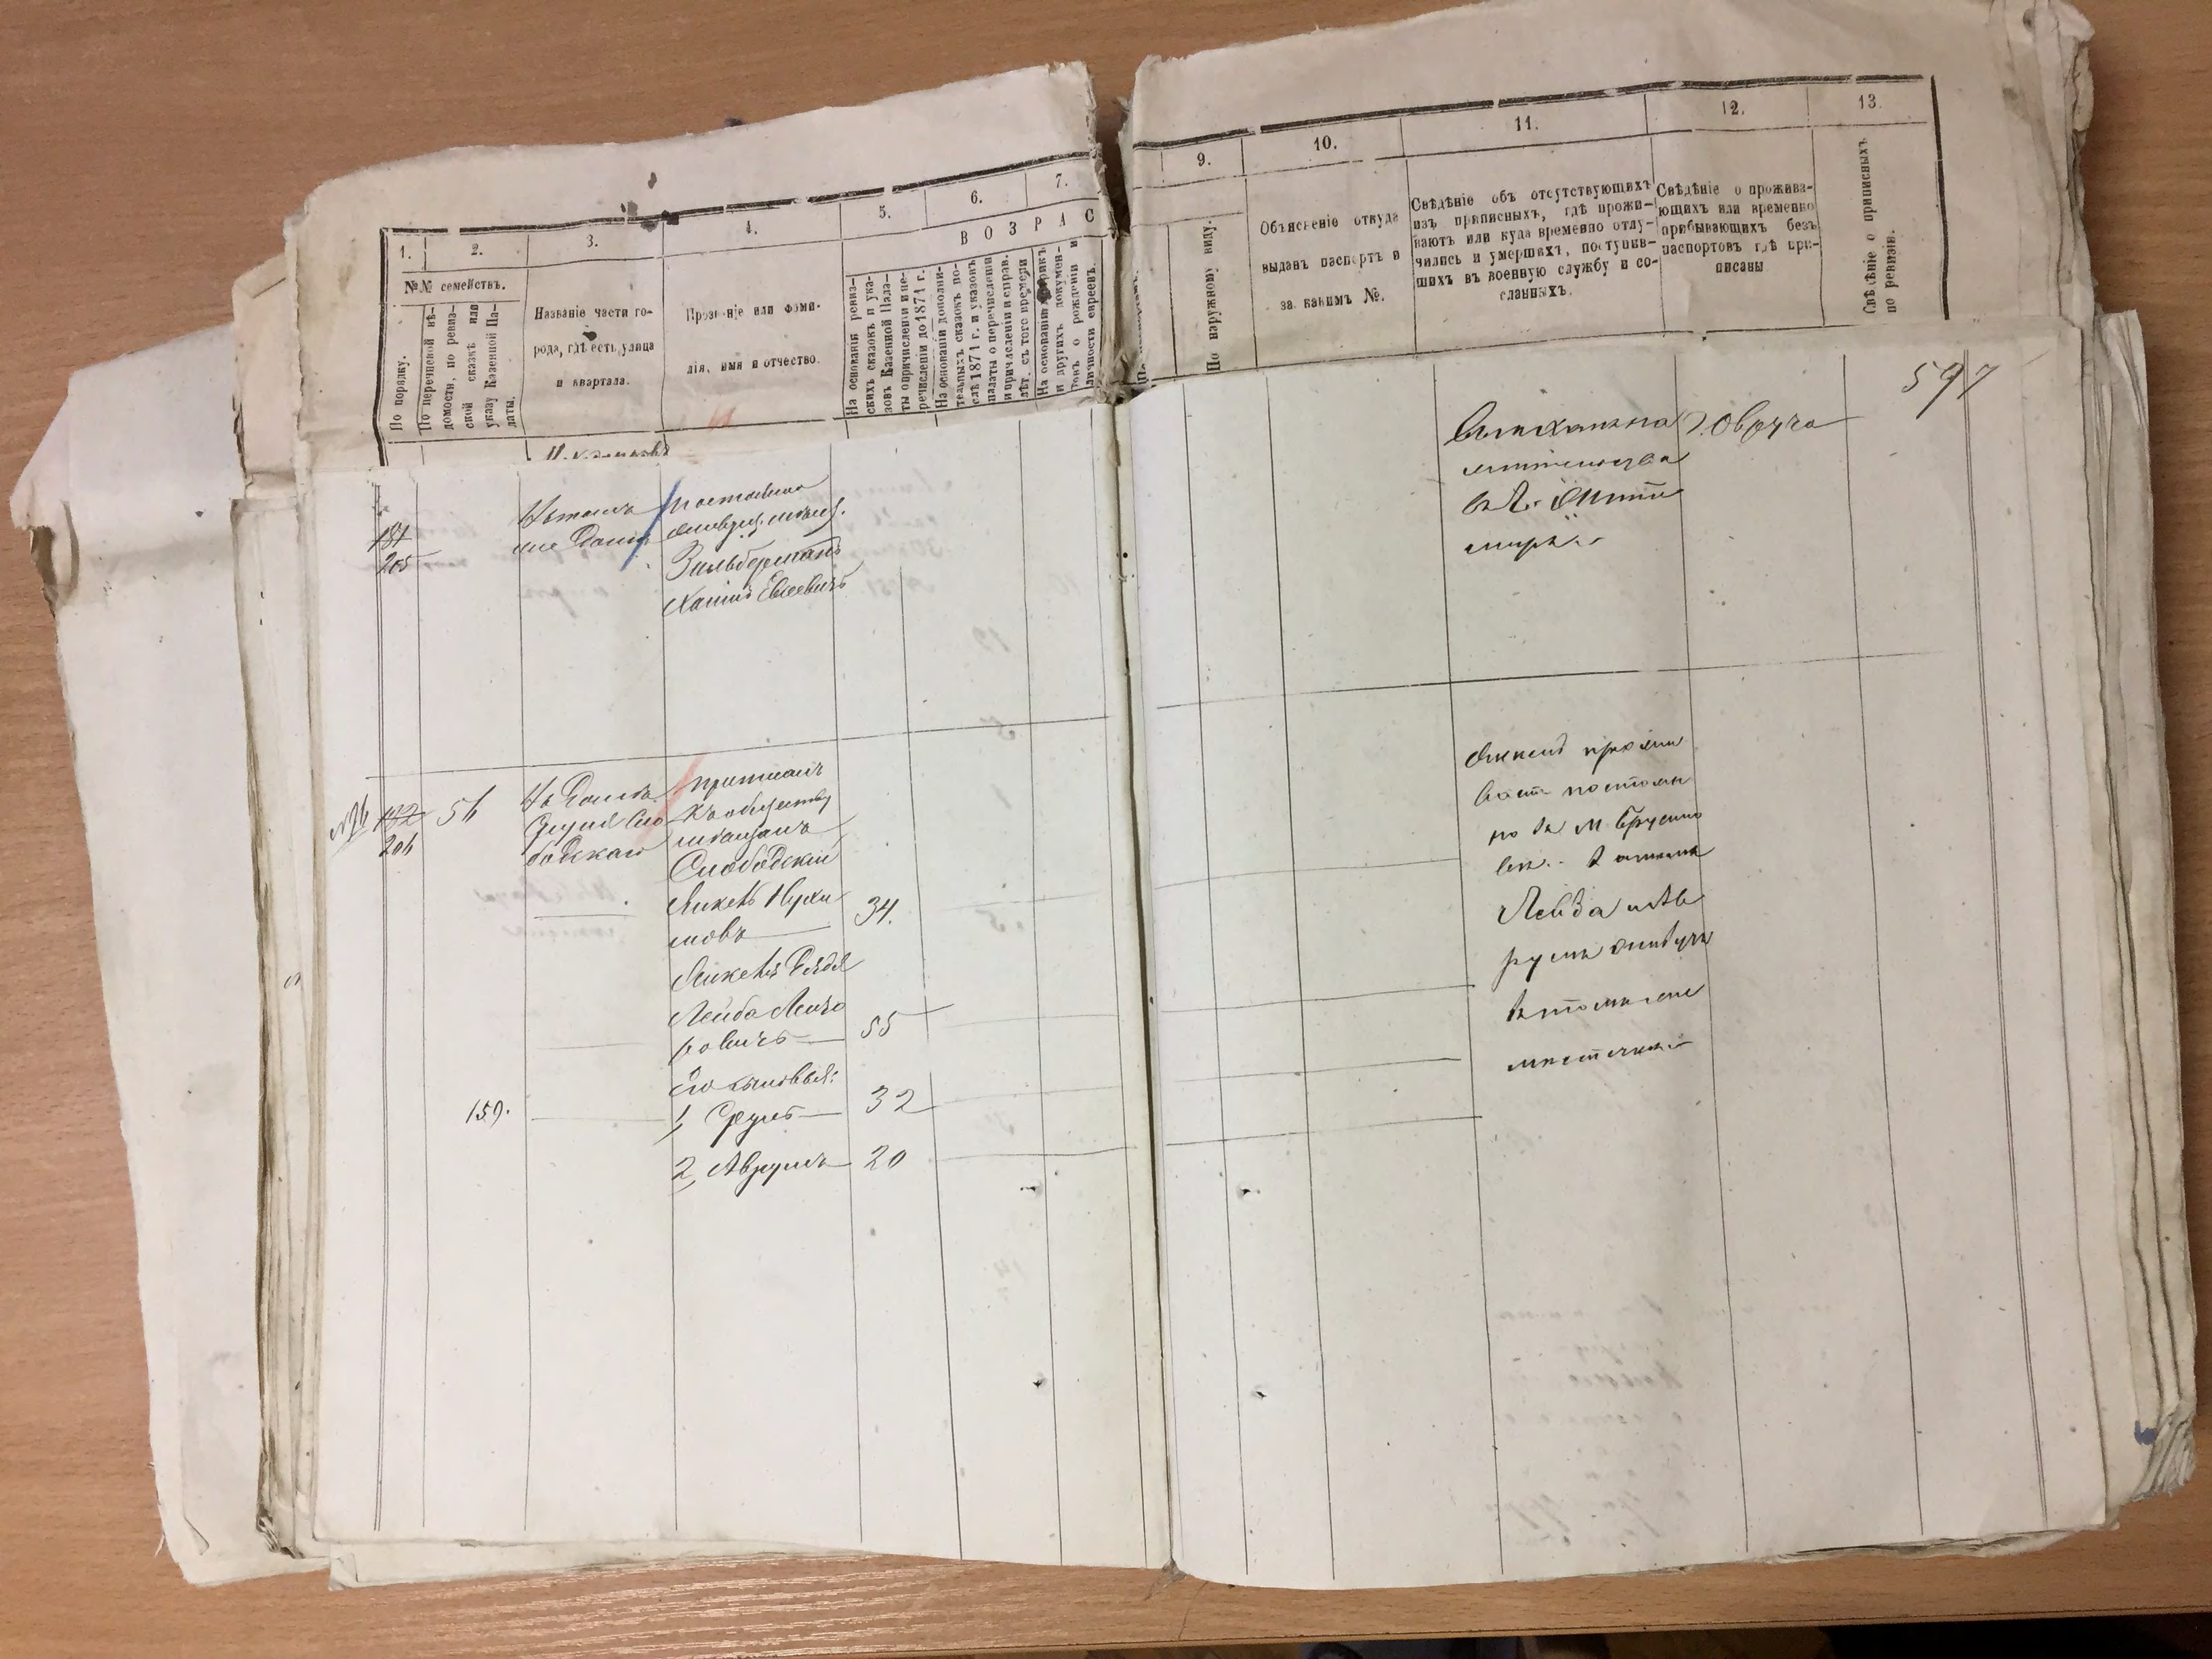 1.
2.
3.
4.
5.
6.
7.
В О З Р А С
№№ семействъ.
По порядку.
По перечневой вѣ-
домости, по ревиз-
ской сказкѣ или
указу Казенной Па-
латы.
Названіе части го-
рода, гдѣ есть улица
и квартала.
Прозваніе или фами-
лія, имя и отчество.
На основаніи ревиз-
скихъ сказокъ и ука-
зовъ Казенной Пала-
ты о причисленіи и пе-
речисленіи до 1871 г.
На основаніи дополни-
тельныхъ сказокъ по-
слѣ 1871 г. и указовъ
палаты о перечисленіи
и причисленіи и справ.
лѣт. съ того времени
На основаніи метрикъ
и другихъ докумен-
товъ о рожденіи и
личности евреевъ.
181
205
Въ томъ
же домѣ
Зильберманъ
Хаимъ Евсеевичъ
182
206
56
Въ домѣ
Сруля Сло
бодскаго
къ обществу
мѣщанъ
Слободскій
Янкель Нухи
мовъ
34.
Янкеля дядя
Лейба Лейзо
ровичъ
55
Его сыновья:
159.
1, Сруль
32
2, Аврумъ
20
9.
10.
11.
12.
13.
По наружному виду.
Объясненіе откуда
выданъ паспортъ и
за какимъ №.
Свѣдѣніе объ отсутствующихъ
изъ приписныхъ, гдѣ прожи-
ваютъ или куда временно отлу-
чились и умершихъ, поступив-
шихъ въ военную службу и со-
сланныхъ.
Свѣдѣніе о прожива-
ющихъ или временно
прибывающихъ безъ
паспортовъ гдѣ при-
писаны
Свѣдѣніе о приписныхъ
по ревизіи.
597
г. Овруча
жительства
въ г. Жито
миръ.
Янкель прожи
ваетъ постоян
но въ м. Брусило
вѣ.
Лейба
въ томъ же
мѣстечкѣ